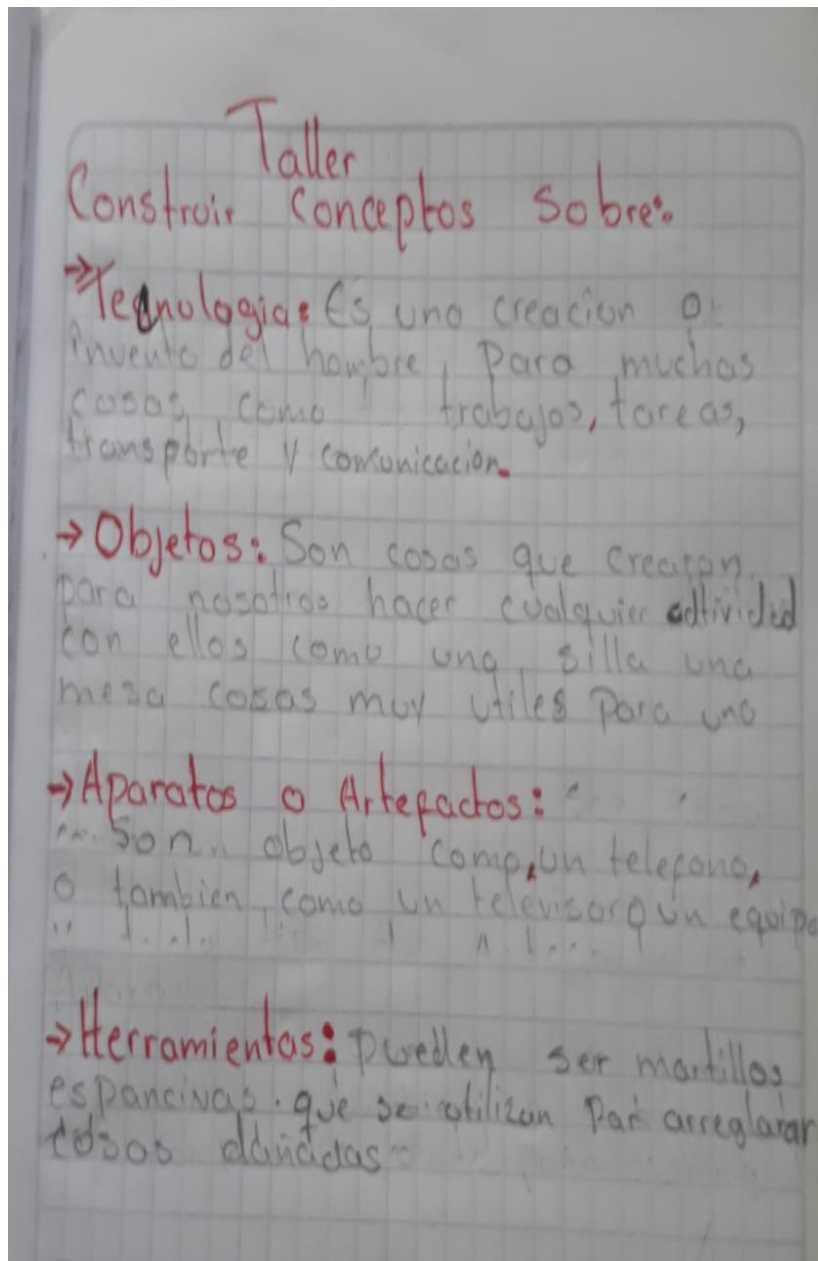 Taller
Construir Conceptos Sobre:
→Tecnologia: Es una creacion o
invento del hombre, para muchas
cosas como trabajos, tareas,
transporte y comunicacion.
→Objetos: Son cosas que crearon
para nosotros hacer cualquier adtividad
con ellos como una silla una
mesa cosas muy utiles para uno
→Aparatos o Artefactos:
Son objeto como, un telefono,
o tambien como un televisor o un equipo
→Herramientas: pueden ser martillos
espancivas. que se utilizan par arreglarar
cosas dañadas